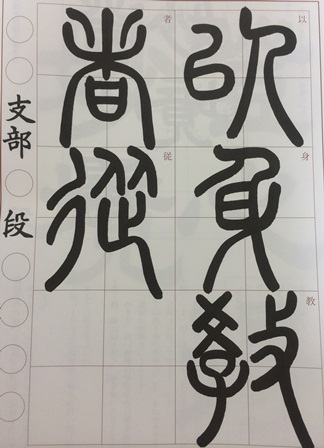 以身教
者従
以
身
教
者
従
支部
段